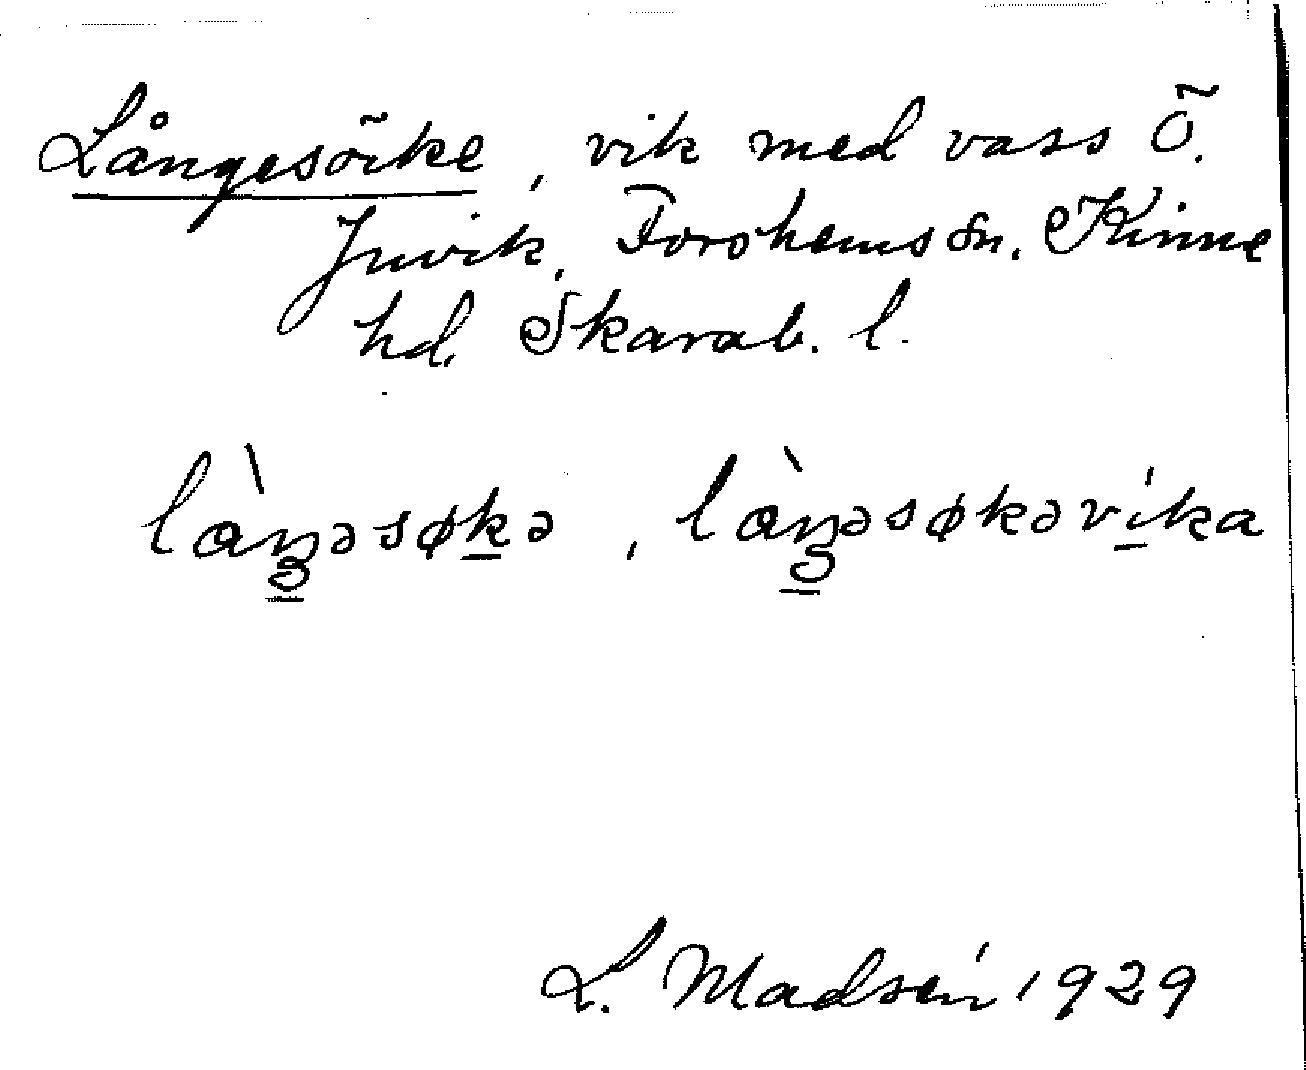 Långesöke, vik med vass Ö.
Juvik, Forshems sn. Kinne
hd. Skarab. l.
là̀ŋəsøkə, làŋəsøkəvíka
L. Madsén 1929